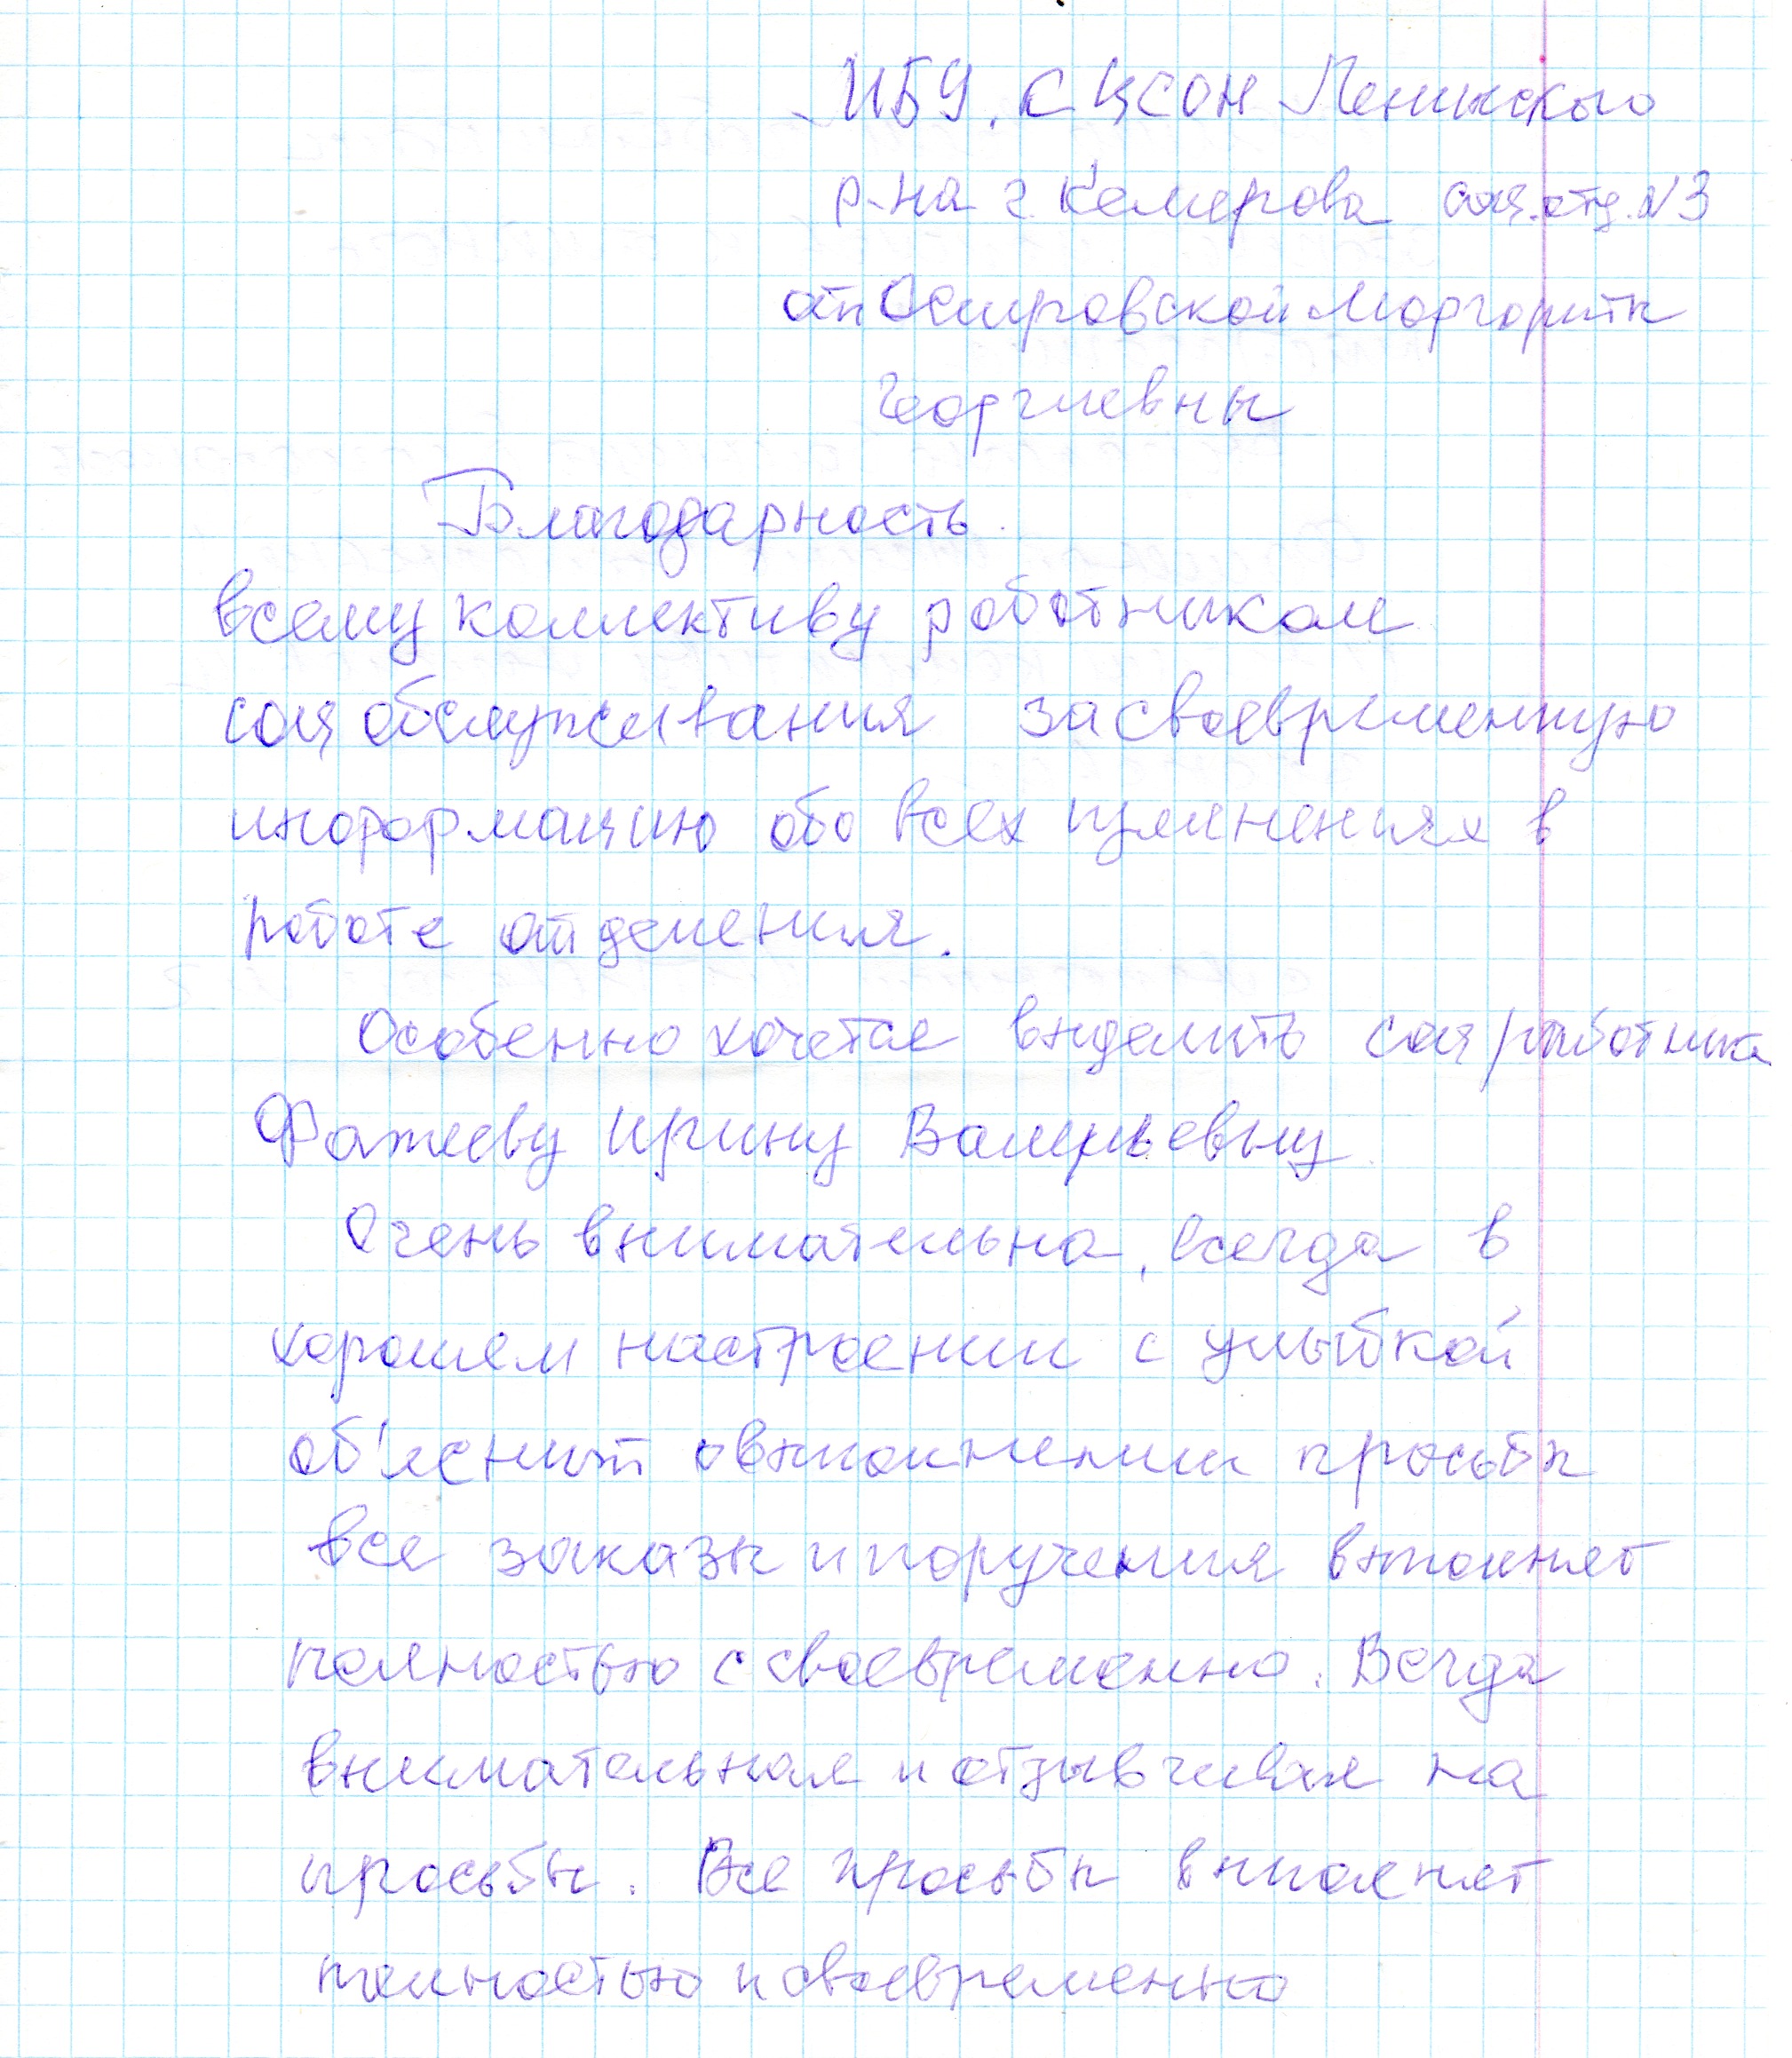 МБУ. КЦСОН Ленинского
р-на г. Кемерова соц. отд. N3
от Островской Маргориты
Георгиевны
Благодарность.
всему коллективу работникам
соц обслуживания за своевременную
информацию обо всех изменениях в
работе отделения.
Особенно хочется выделить соц работника
Ирину Валерьевну.
Очень внимательна, всегда в
хорошем настроении с улыбкой
об'яснит о выполнении просьбы
все заказы и поручения выполняет
полностью с своевременно. Всегда
внимательная и отзывчивая на
просьбы. Все просьбы выполняет
полностью и своевременно